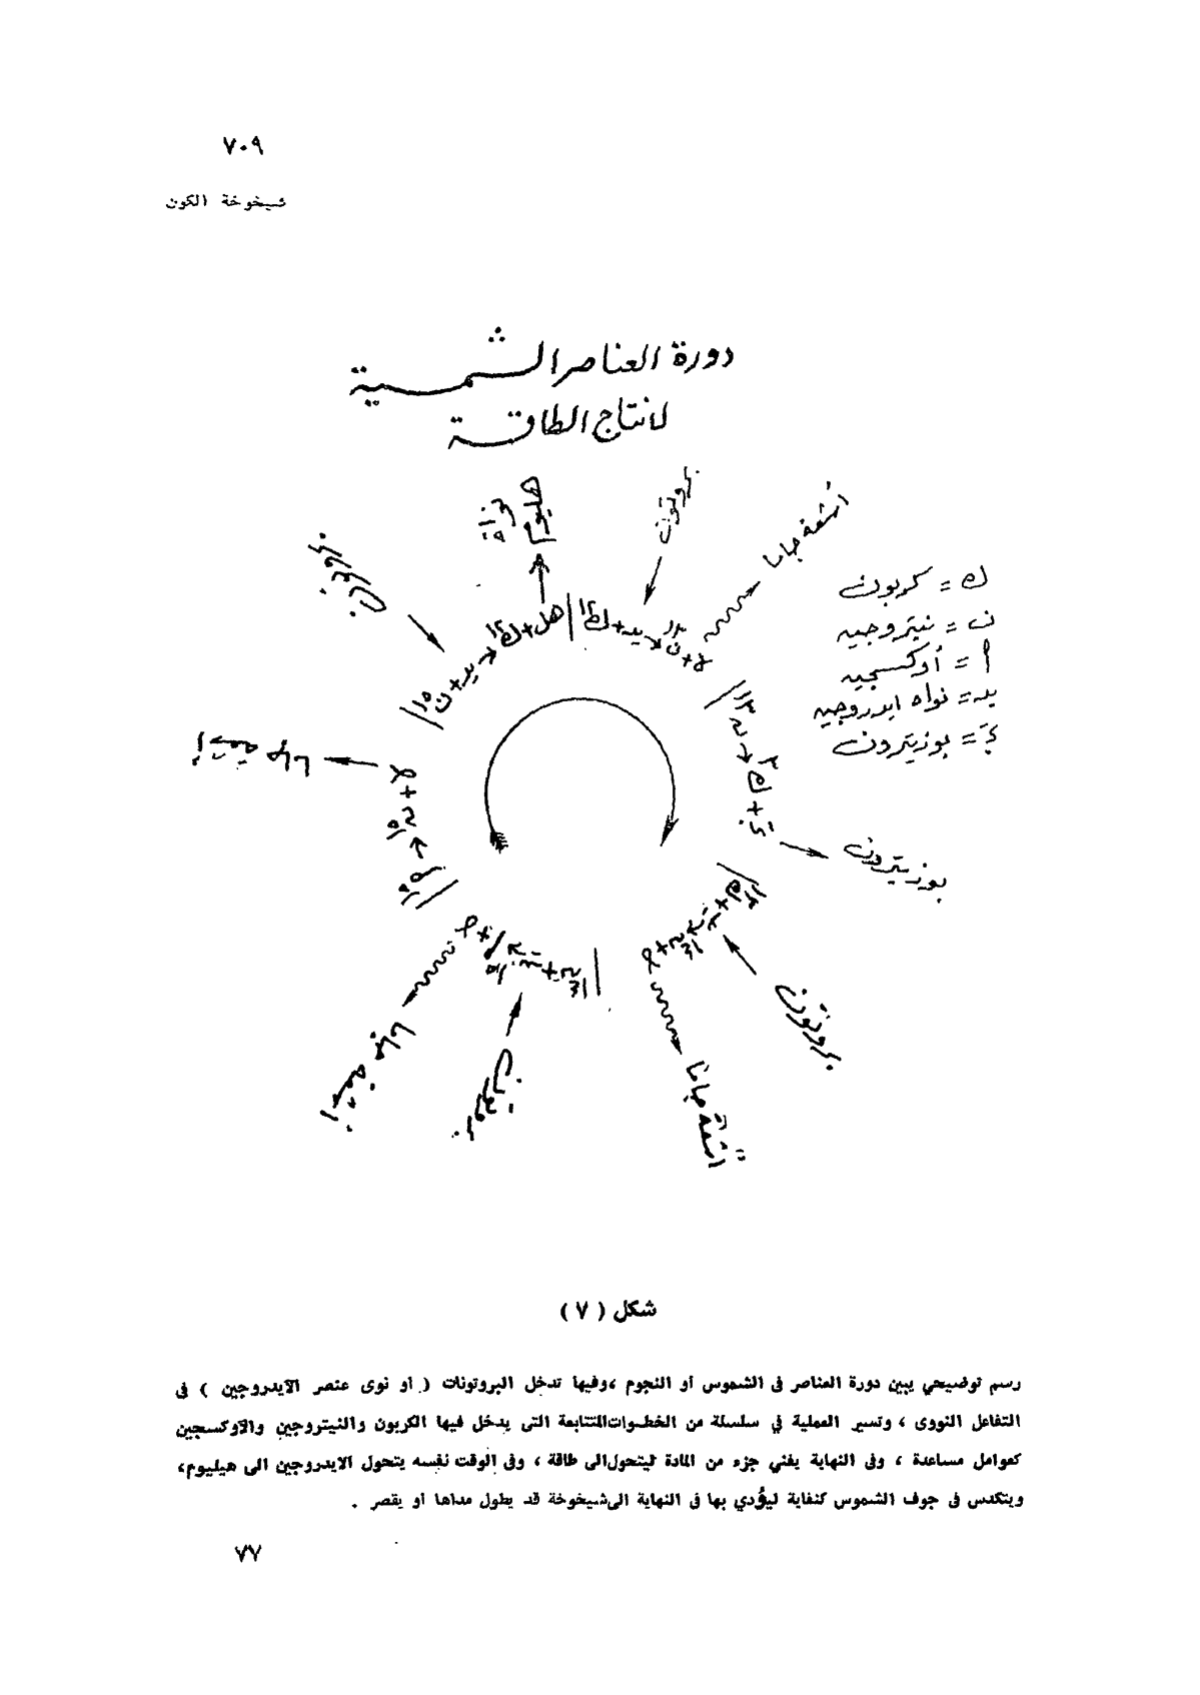 ٧٠٩
شيخوخة الكون
دورة العناصر الشمسية
لانتاج الطاقة
بروتون
أشعة جاما
نواة
هليوم
هل + ك١٢
ك١٢ + يد → ن١٣ + γ
ن١٣ → ك١٣ + بَ
بوزيترون
بروتون
أشعة جاما
بروتون
أشعة جاما
ن١٥ + يد → ك١٢ + هل
ك = كربون
ن = نيتروجين
أ = أوكسجين
يد = نواه ايدروجين
بَ = بوزيترون
شكل ( ٧ )
رسم توضيحي يبين دورة العناصر فى الشموس أو النجوم ، وفيها تدخل البروتونات ( أو نوى عنصر الآيدروجين ) فى
التفاعل النووى ، وتسير العملية في سلسلة من الخطوات المتتابعة التى يدخل فيها الكربون والنيتروجين والآوكسجين
كعوامل مساعدة ، وفى النهاية يفني جزء من المادة ليتحول الى طاقة ، وفى الوقت نفسه يتحول الايدروجين الى هيليوم ،
ويتكدس فى جوف الشموس كنفاية ليؤدي بها فى النهاية الى شيخوخة قد يطول مداها أو يقصر .
٧٧